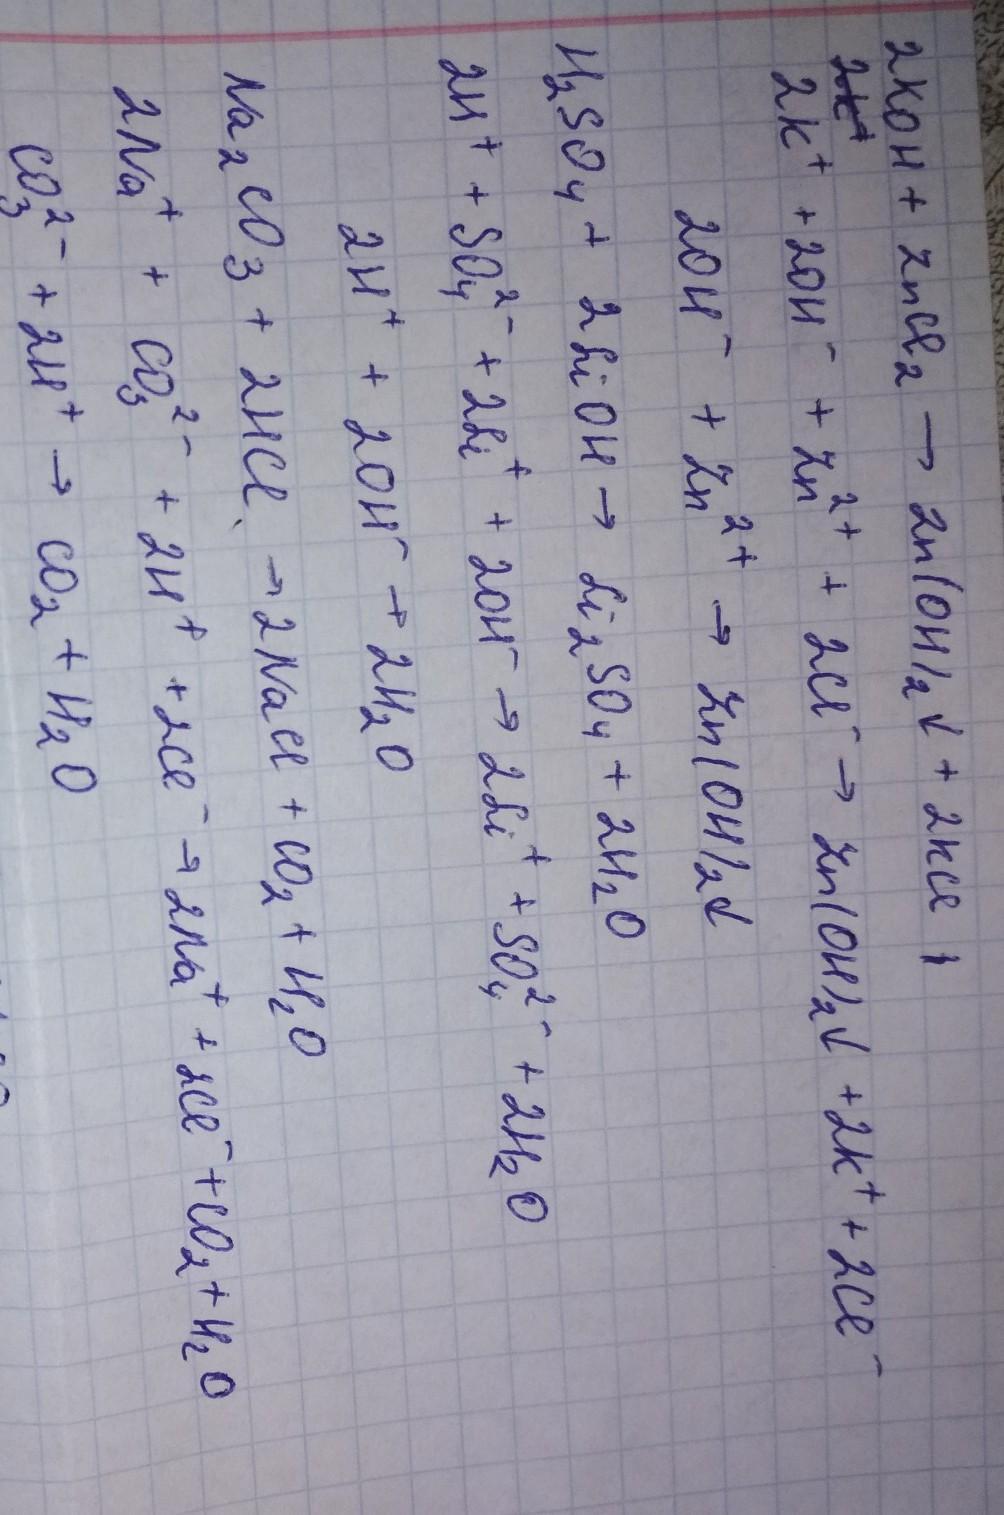 2KOH + ZnCl₂ → Zn(OH)₂↓ + 2KCl
2K⁺ + 2OH⁻ + Zn²⁺ + 2Cl⁻ → Zn(OH)₂↓ + 2K⁺ + 2Cl⁻
2OH⁻ + Zn²⁺ → Zn(OH)₂↓
H₂SO₄ + 2LiOH → Li₂SO₄ + 2H₂O
2H⁺ + SO₄²⁻ + 2Li⁺ + 2OH⁻ → 2Li⁺ + SO₄²⁻ + 2H₂O
2H⁺ + 2OH⁻ → 2H₂O
Na₂CO₃ + 2HCl → 2NaCl + CO₂ + H₂O
2Na⁺ + CO₃²⁻ + 2H⁺ + 2Cl⁻ → 2Na⁺ + 2Cl⁻ + CO₂ + H₂O
CO₃²⁻ + 2H⁺ → CO₂ + H₂O